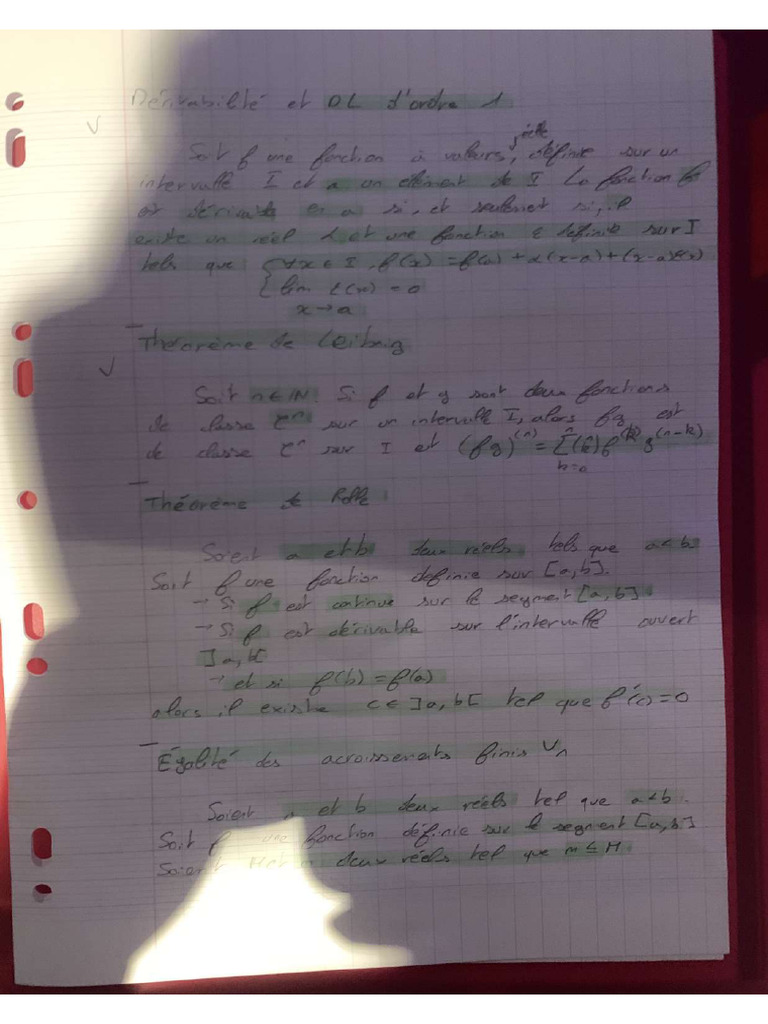 Dérivabilité et DL d'ordre 1
Soit f une fonction à valeurs réelle, définie sur un
intervalle I et a un élément de I La fonction f
est dérivable en a si, et seulement si, il
existe un réel α et une fonction ε définie sur I
tels que { ∀x ∈ I, f(x) = f(a) + α(x-a) + (x-a)ε(x)
lim ε(x) = 0
x → a
Théorème de Leibniz
Soit n ∈ IN. Si f et g sont deux fonctions
de classe C^n sur un intervalle I, alors fg est
de classe C^n sur I et (fg)^(n) = Σ (n k) f^(k) g^(n-k)
k=0
Théorème de Rolle
Soient a et b deux réels tels que a < b
Soit f une fonction définie sur [a,b].
→ Si f est continue sur le segment [a,b]
→ Si f est dérivable sur l'intervalle ouvert
]a,b[
→ et si f(b) = f(a)
alors il existe c ∈ ]a,b[ tel que f'(c) = 0
Égalité des acroissements finis
Soient a et b deux réels tel que a < b.
Soit f une fonction définie sur le segment [a,b]
Soient M et m deux réels tel que m ≤ M